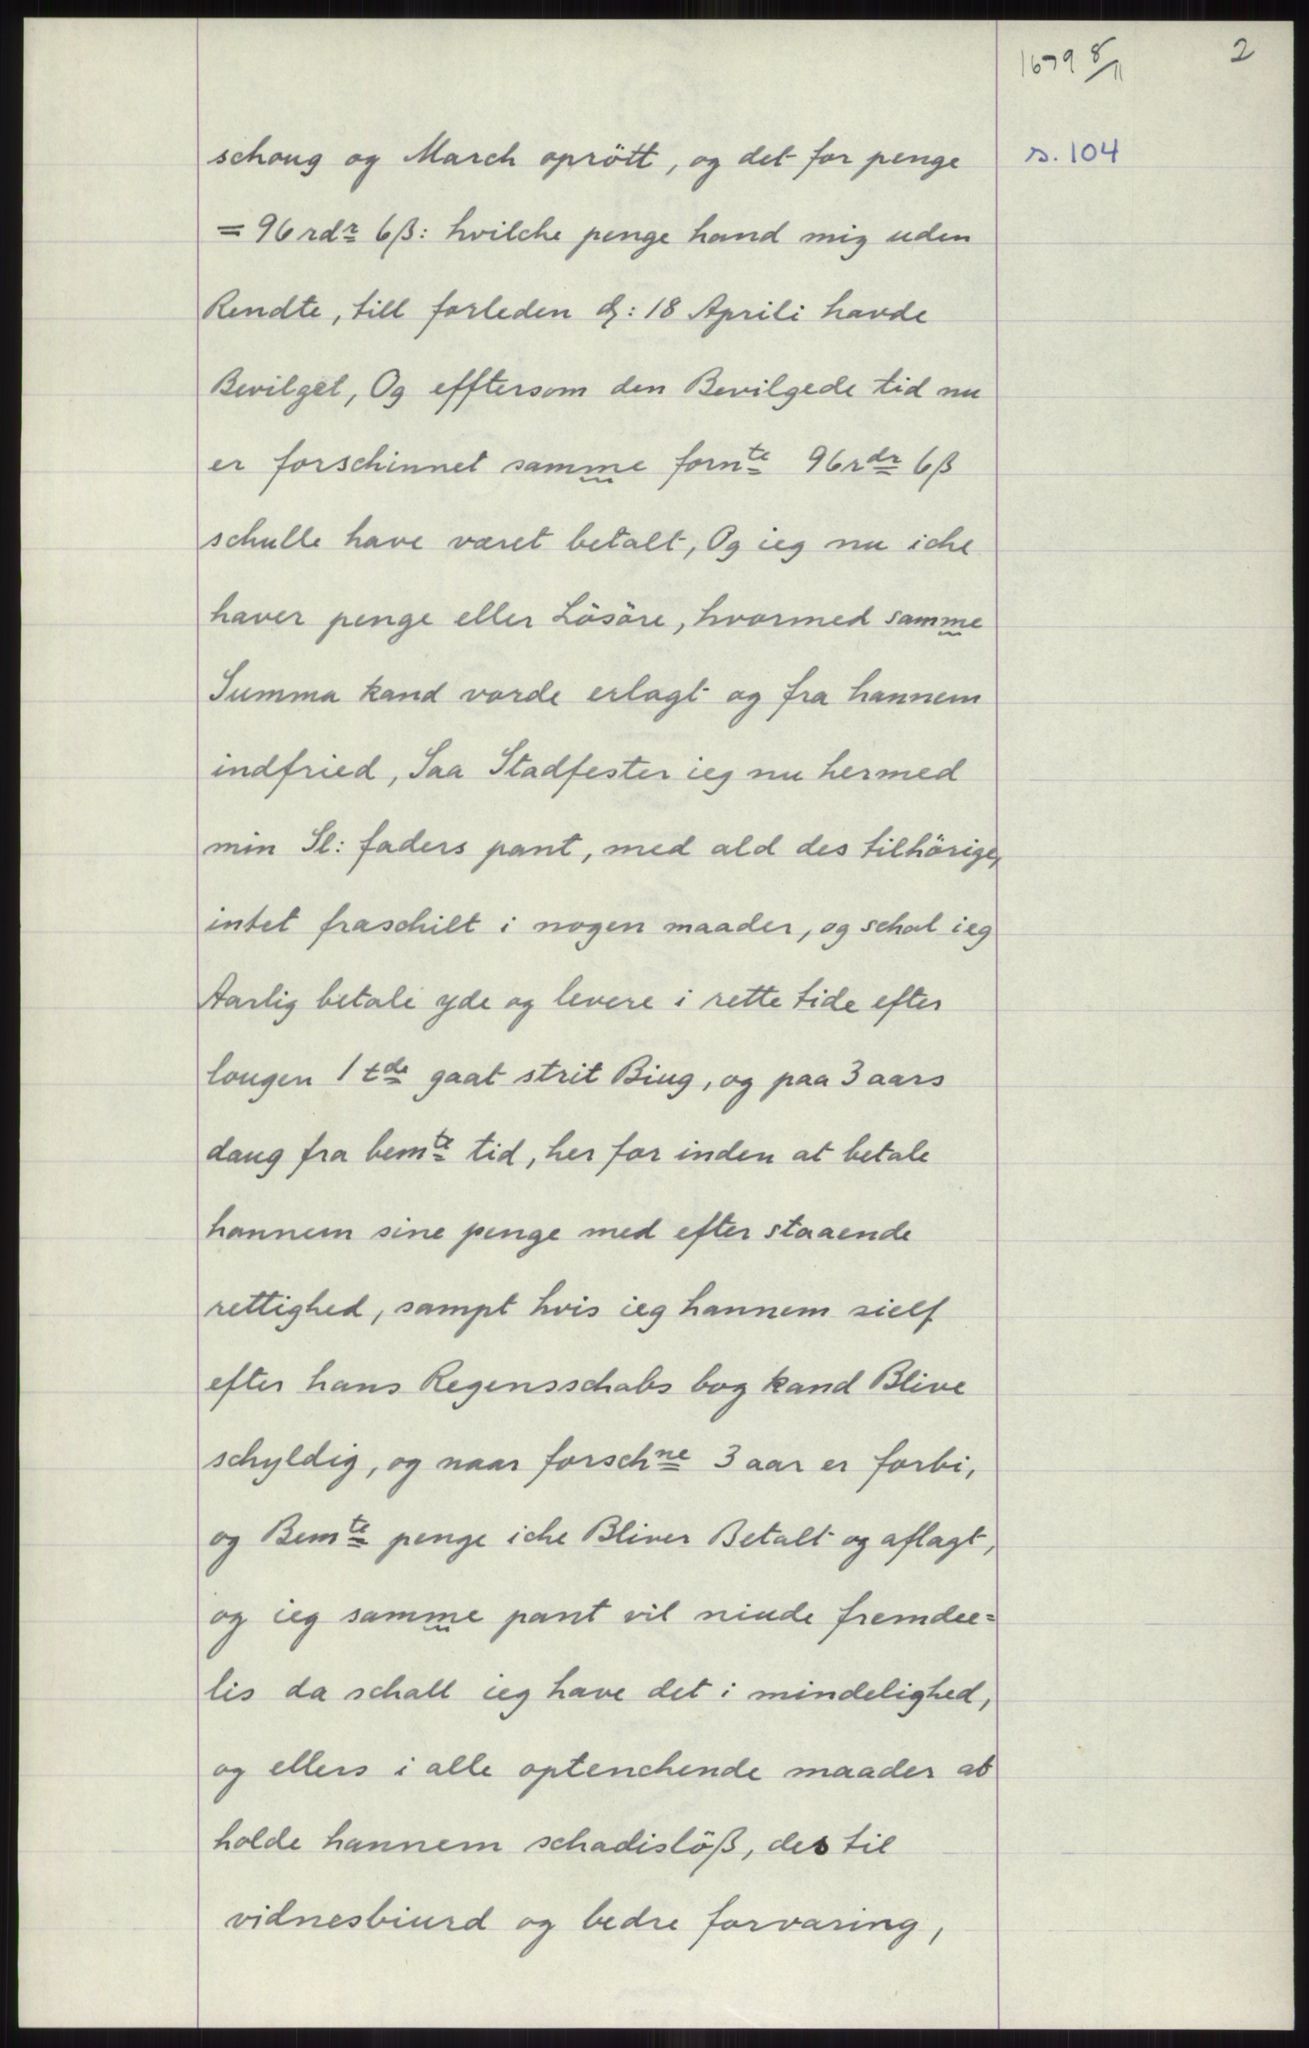 1679 8/11
2
schoug og March oprött, og det for penge
s. 104
= 96 rdr 6ß: hvilche penge hand mig uden
Rendte, till forleden d: 18 Aprili havde
Bevilget, Og efftersom den Bevilgede tid nu
er forschinnet samme fornte 96 rdr 6ß
schulle have været betalt, Og ieg nu iche
haver penge eller Lösöre, hvormed samme
Summa kand vorde erlagt og fra hannem
indfried, Saa Stadfester ieg nu hermed
min Sl: faders pant, med ald des tilhörige,
intet fraschilt i nogen maader, og schal ieg
Aarlig betale yde og levere i rette tide efter
lougen 1 tde gaat strit Biug, og paa 3 aars
daug fra bemte tid, her for inden at betale
hannem sine penge med efter staaende
rettighed, sampt hvis ieg hannem sielf
efter hans Regensschabs bog kand Blive
schyldig, og naar forschne 3 aar er forbi,
og Bemte penge iche Bliver Betalt og aflagt,
og ieg samme pant vil niude fremdee=
lis da schall ieg have det i mindelighed,
og ellers i alle optenchende maader at
holde hannem schadislöß, des til
vidnesbiurd og bedre forvaring,